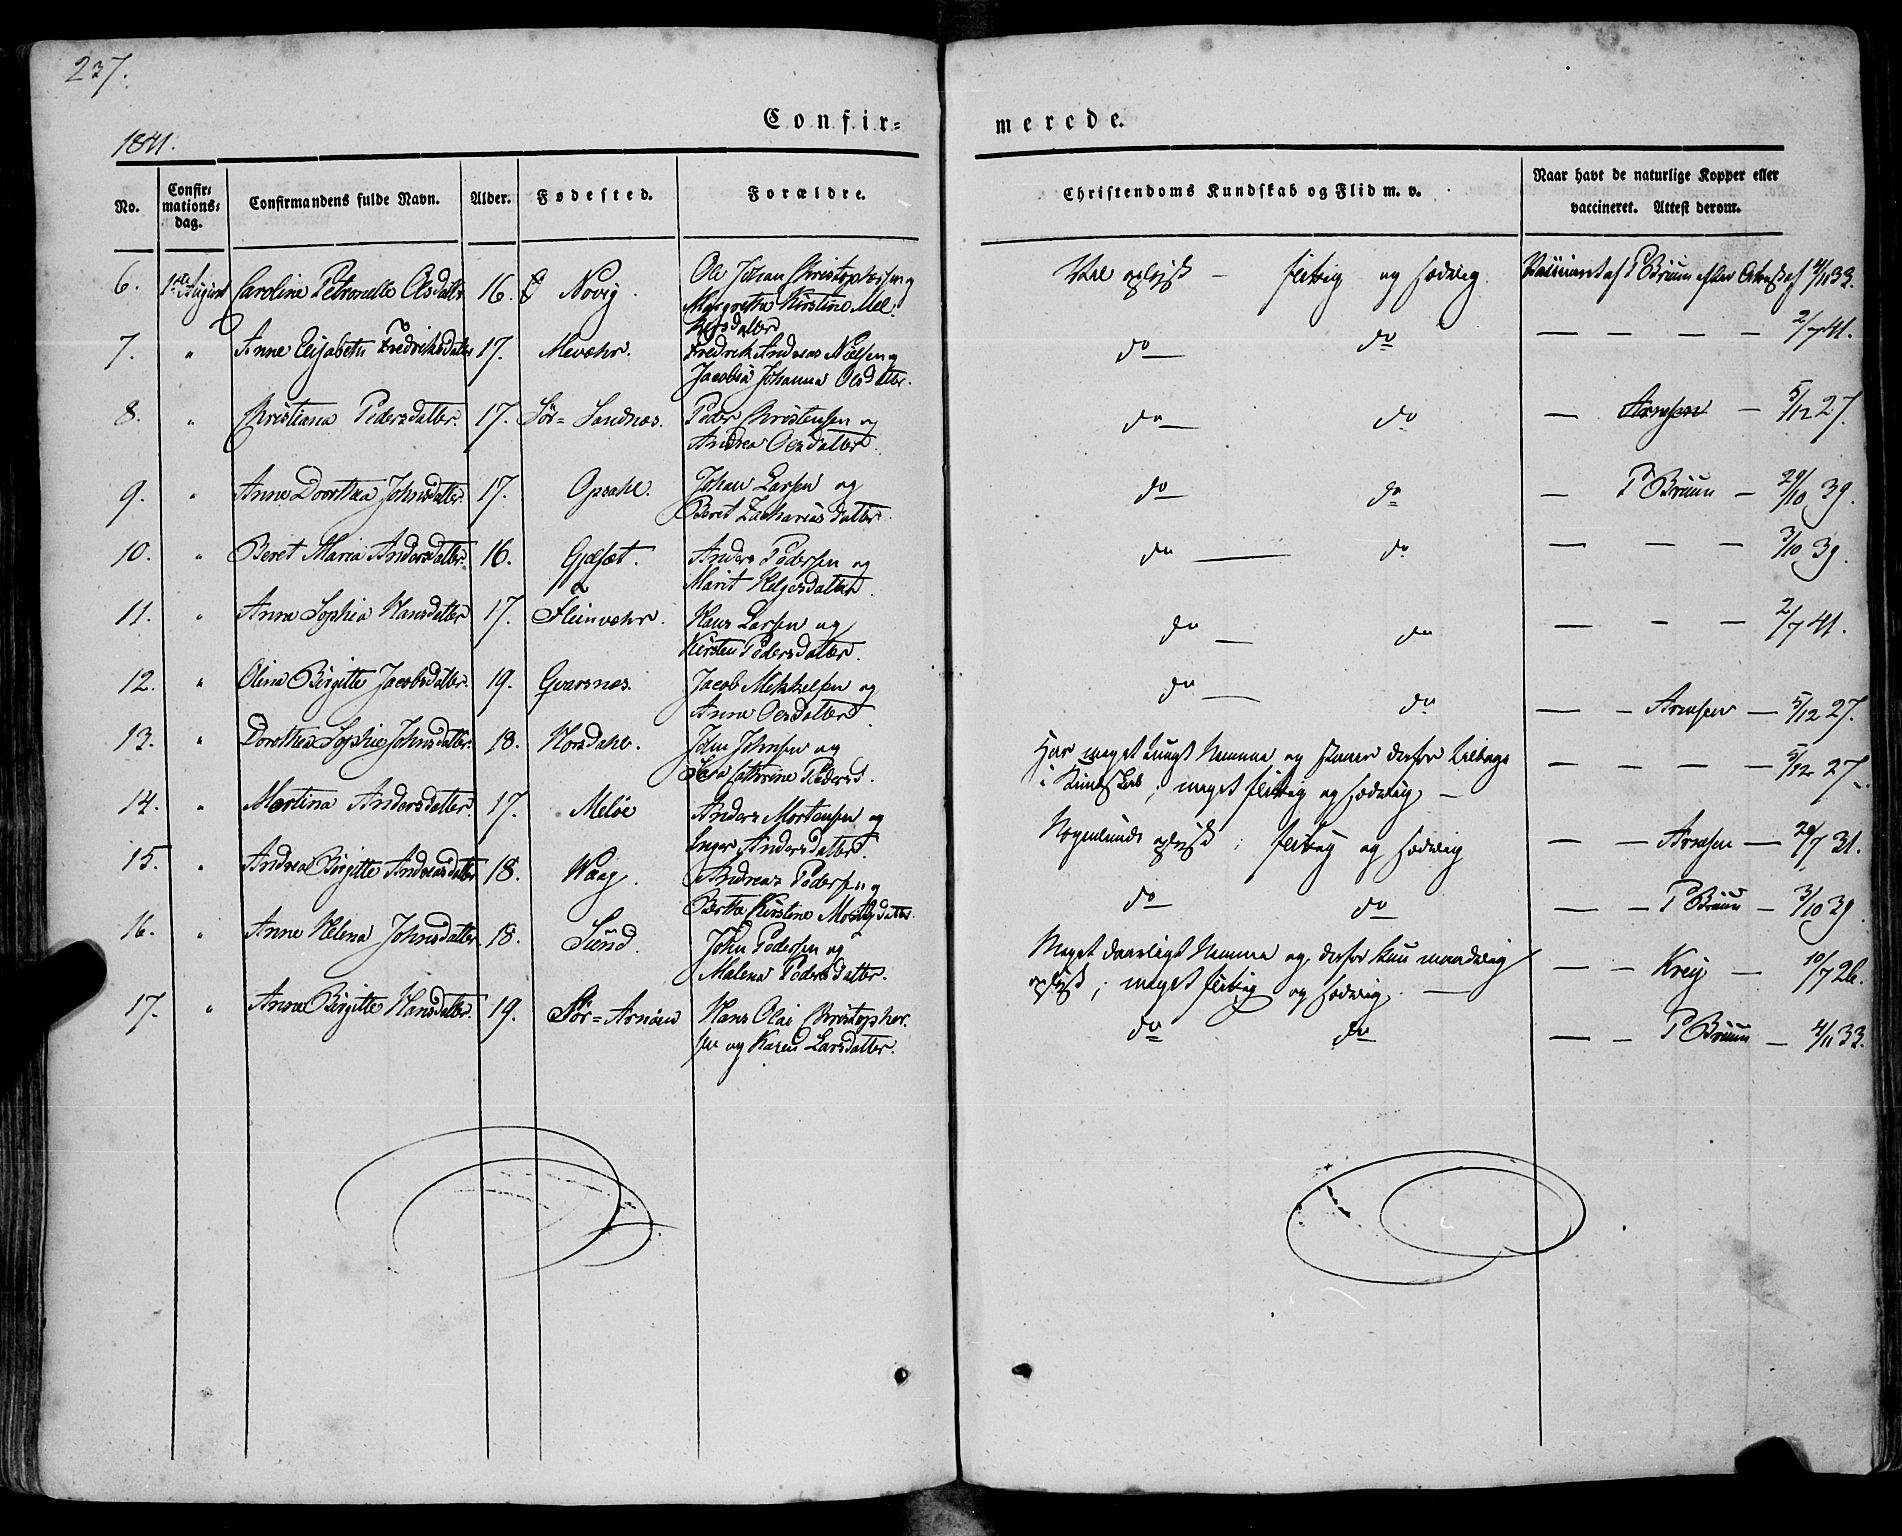 237.
Confir=
merede.
1841.
No.
Confir=
mations=
dag.
Confirmandens fulde Navn.
Alder.
Fødested.
Forældre.
Christendoms Kundskab og Flid m. v.
Naar havt de naturlige Kopper eller
vaccineret. Attest derom.
6. 1ste August Caroline Petronelle Olsdatter 16. Novig. Ole Johan Christophersen og
Margrethe Kirstine Mel-
kersdatter
Vel oplyst — flittig og sædelig. Vaccineret af P Bruun efter Attest af 4/11 33.
7. " Anne Elisabeth Fredriksdatter 17. Mevæhr. Fredrik Andreas Nielsen og
Jacobia Johanna Olsdatter.
do do — — — — 2/7 41.
8. " Christiana Pedersdatter. 17. Sör= Sandnæs. Peder Christensen og
Andrea Olsdatter.
do do — Arnesen — 5/12 27.
9. " Anne Dorthea Johnsdatter. 17. Opsahl. Johan Larsen og
Beret Zachariasdatter.
do do — P Bruun — 29/10 39.
10. " Beret Maria Andersdatter. 16. Gjæset. Anders Pedersen og
Marit Helgesdatter.
do do — — — 3/10 39.
11. " Anne Sophia Hansdatter 17. Fleinvæhr. Hans Larsen og
Kirsten Pedersdatter.
do do — — — 2/7 41.
12. " Olina Birgitte Jacobsdatter. 19. Gvarsnes. Jacob Mikkelsen og
Anne Olsdatter.
do do — — Arnesen — 5/12 27.
13. " Dorothea Sophie Johnsdatter. 18. Horsdahl. John Johnsen og
Cathrine Peders d.
Har meget tungt Nemme og staaer derfor tilbage
i Kundskab; meget flittig og sædelig. —
— — — — 5/12 27.
14. " Martina Andersdatter. 17. Meløe Anders Mortensen og
Inger Andersdatter.
Nogenlunde oplyst; flittig og sædelig
— — Arnesen — 20/7 31.
15. " Andrea Birgitte Andreasdatter 18. Waag. Andreas Pedersen og
Bertha Kirstine Mortensdatter.
do do — — P Bruun — 3/10 39.
16. " Anne Helena Johnsdatter. 18. Sund. John Pedersen og
Malena Pedersdatter.
Meget daarligt Nemme og derfor kun maadelig
oplyst; meget flittig og sædelig. —
— — Kreij — 10/7 26.
17. " Anne Birgitte Hansdatter. 19. Sör=Arnöen Hans Olai Christopher-
sen og Karen Larsdatter.
do do — — P Bruun — 4/11 33.